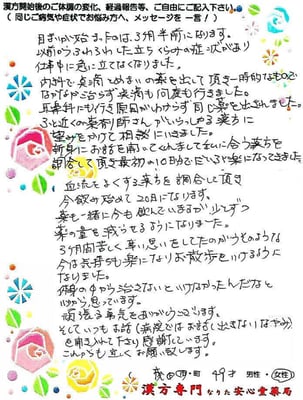 漢方開始後のご体調の変化、経過報告等、ご自由にご記入下さい。
（ 同じご病気や症状でお悩み方へ、メッセージを 一言 / ）
目まいが始まったのは3ヶ月半前になります。
以前からふわふわした立ちくらみの症状があり
仕事中に急に立てなくなりました。
内科で点滴とめまいの薬を出して頂き一時的なもので
なかなか治らず点滴も何度も行きました。
耳鼻科にも行き原因がわからず同じ薬を出されました。
ふと近くの薬剤師さんがいらっしゃる漢方に
望みをかけて相談にいきました。
親身にお話を聞いてくれまして私に合う漢方を
調合して頂き最初の10日分でだいぶ楽になってきました。
血流をよくする漢方を調合して頂き
今飲み始めて20日になります。
薬も一緒に今も飲んでいますが少しずつ
薬の量を減らせるようになりました。
3ヶ月間苦しく辛い思いをしてたのがうそのような
今は気持ちも楽になりお散歩をいけるように
なりました。
体の中から治さないといけなかったんだなと
心から思っています。
頑張る勇気をありがとうございます。
そしていつもお話（病院ではお話し出きないなやみ）
を聞き入れて下さり感謝しています。
これからも宜しくお願い致します。
市・町 49才 男性・女性
漢方専門 なりた安心堂薬局